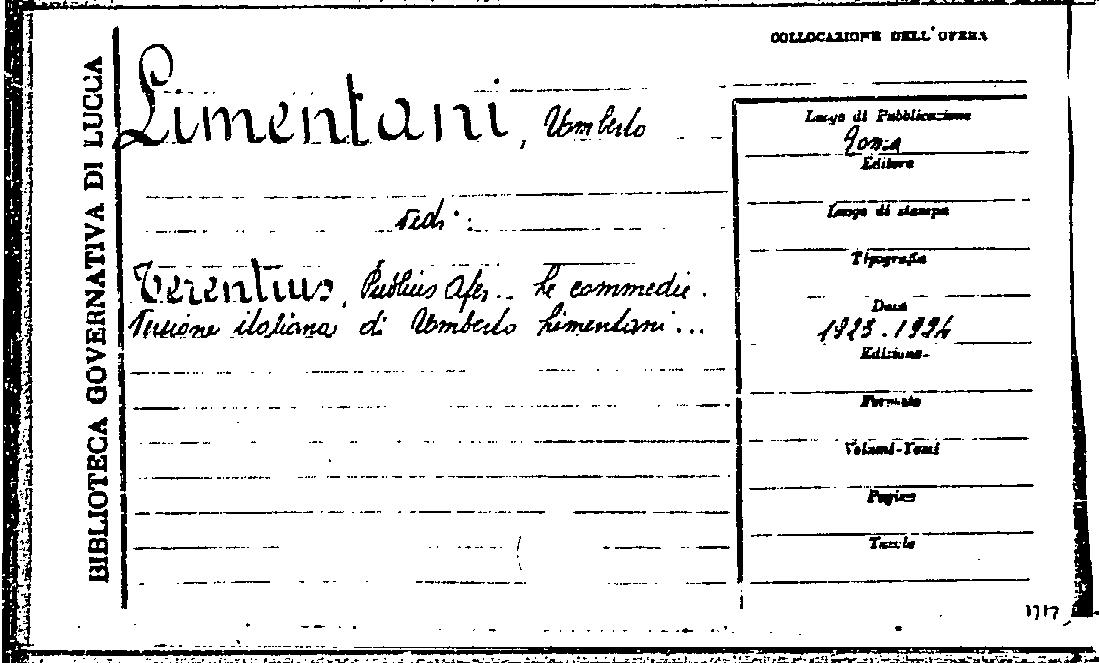 BIBLIOTECA GOVERNATIVA DI LUCCA
COLLOCAZIONE DELL'OPERA
Limentani, Umberto
vedi:
Terentius, Publius Afer... Le commedie.
Versione italiana di Umberto Limentani...
Luogo di Pubblicazione
Roma
Editore
Luogo di stampa
Tipografia
Data
1923-1924
Edizione
Formato
Volumi-Tomi
Pagine
Tavole